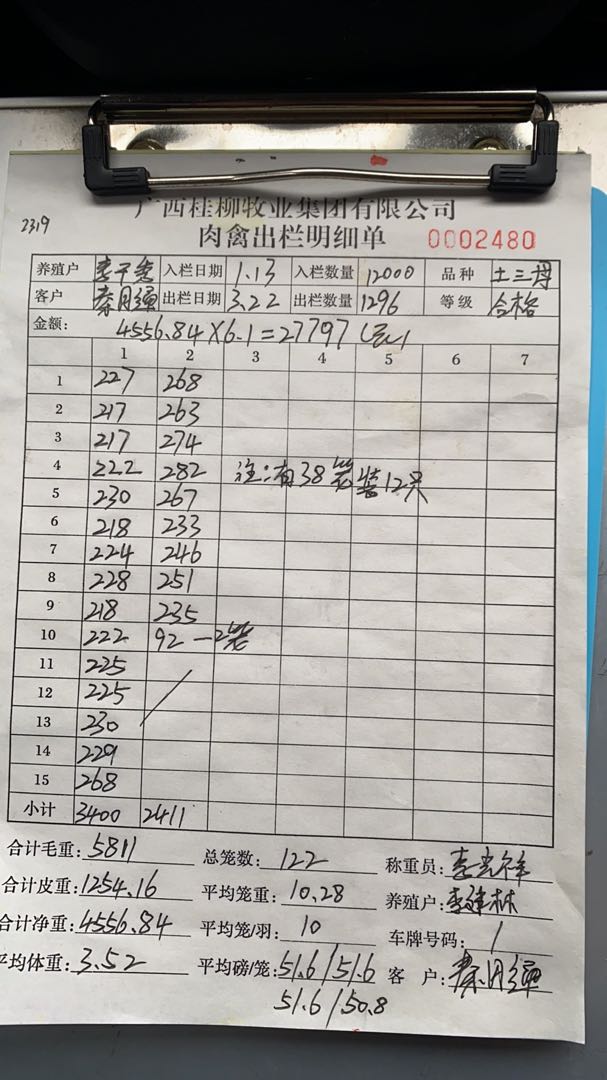 2319
广西桂柳牧业集团有限公司
肉禽出栏明细单 0002480
养殖户 入栏日期 1.13 入栏数量 12000 品种 土三博
客户 秦月强 出栏日期 3.22 出栏数量 1296 等级 合格
金额: 4556.84×6.1=27797(元)
1 2 3 4 5 6 7
1 227 268
2 217 263
3 217 274
4 222 282 注:有38笼装12只
5 230 267
6 218 233
7 224 246
8 228 251
9 218 235
10 222 92 一2笼
11 225
12 225
13 230
14 229
15 268
小计 3400 2411
合计毛重: 5811 总笼数: 122 称重员: 李光祥
合计皮重: 1254.16 平均笼重: 10.28 养殖户: 李建林
合计净重: 4556.84 平均笼/羽: 10 车牌号码: /
平均体重: 3.52 平均磅/笼: 51.6/51.6 客户: 秦月强
51.6/50.8